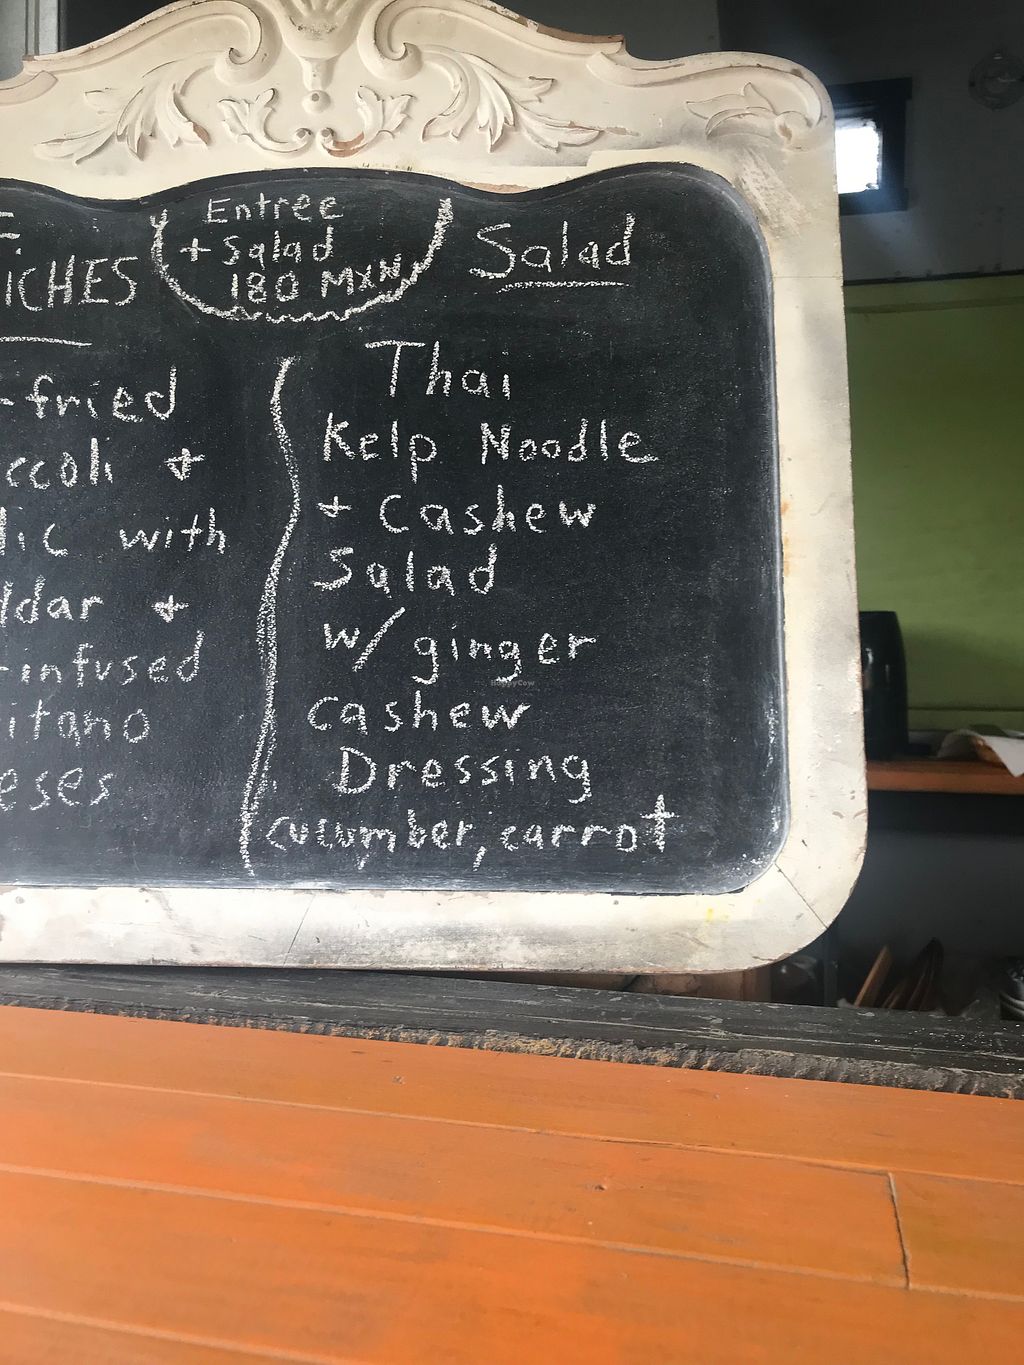 Entree
+ Salad
180 MXN
ICHES
-fried
ccoli +
lic with
ldar +
-infused
itano
eses
Salad
Thai
Kelp Noodle
+ Cashew
Salad
w/ ginger
cashew
Dressing
cucumber, carrot
HappyCow